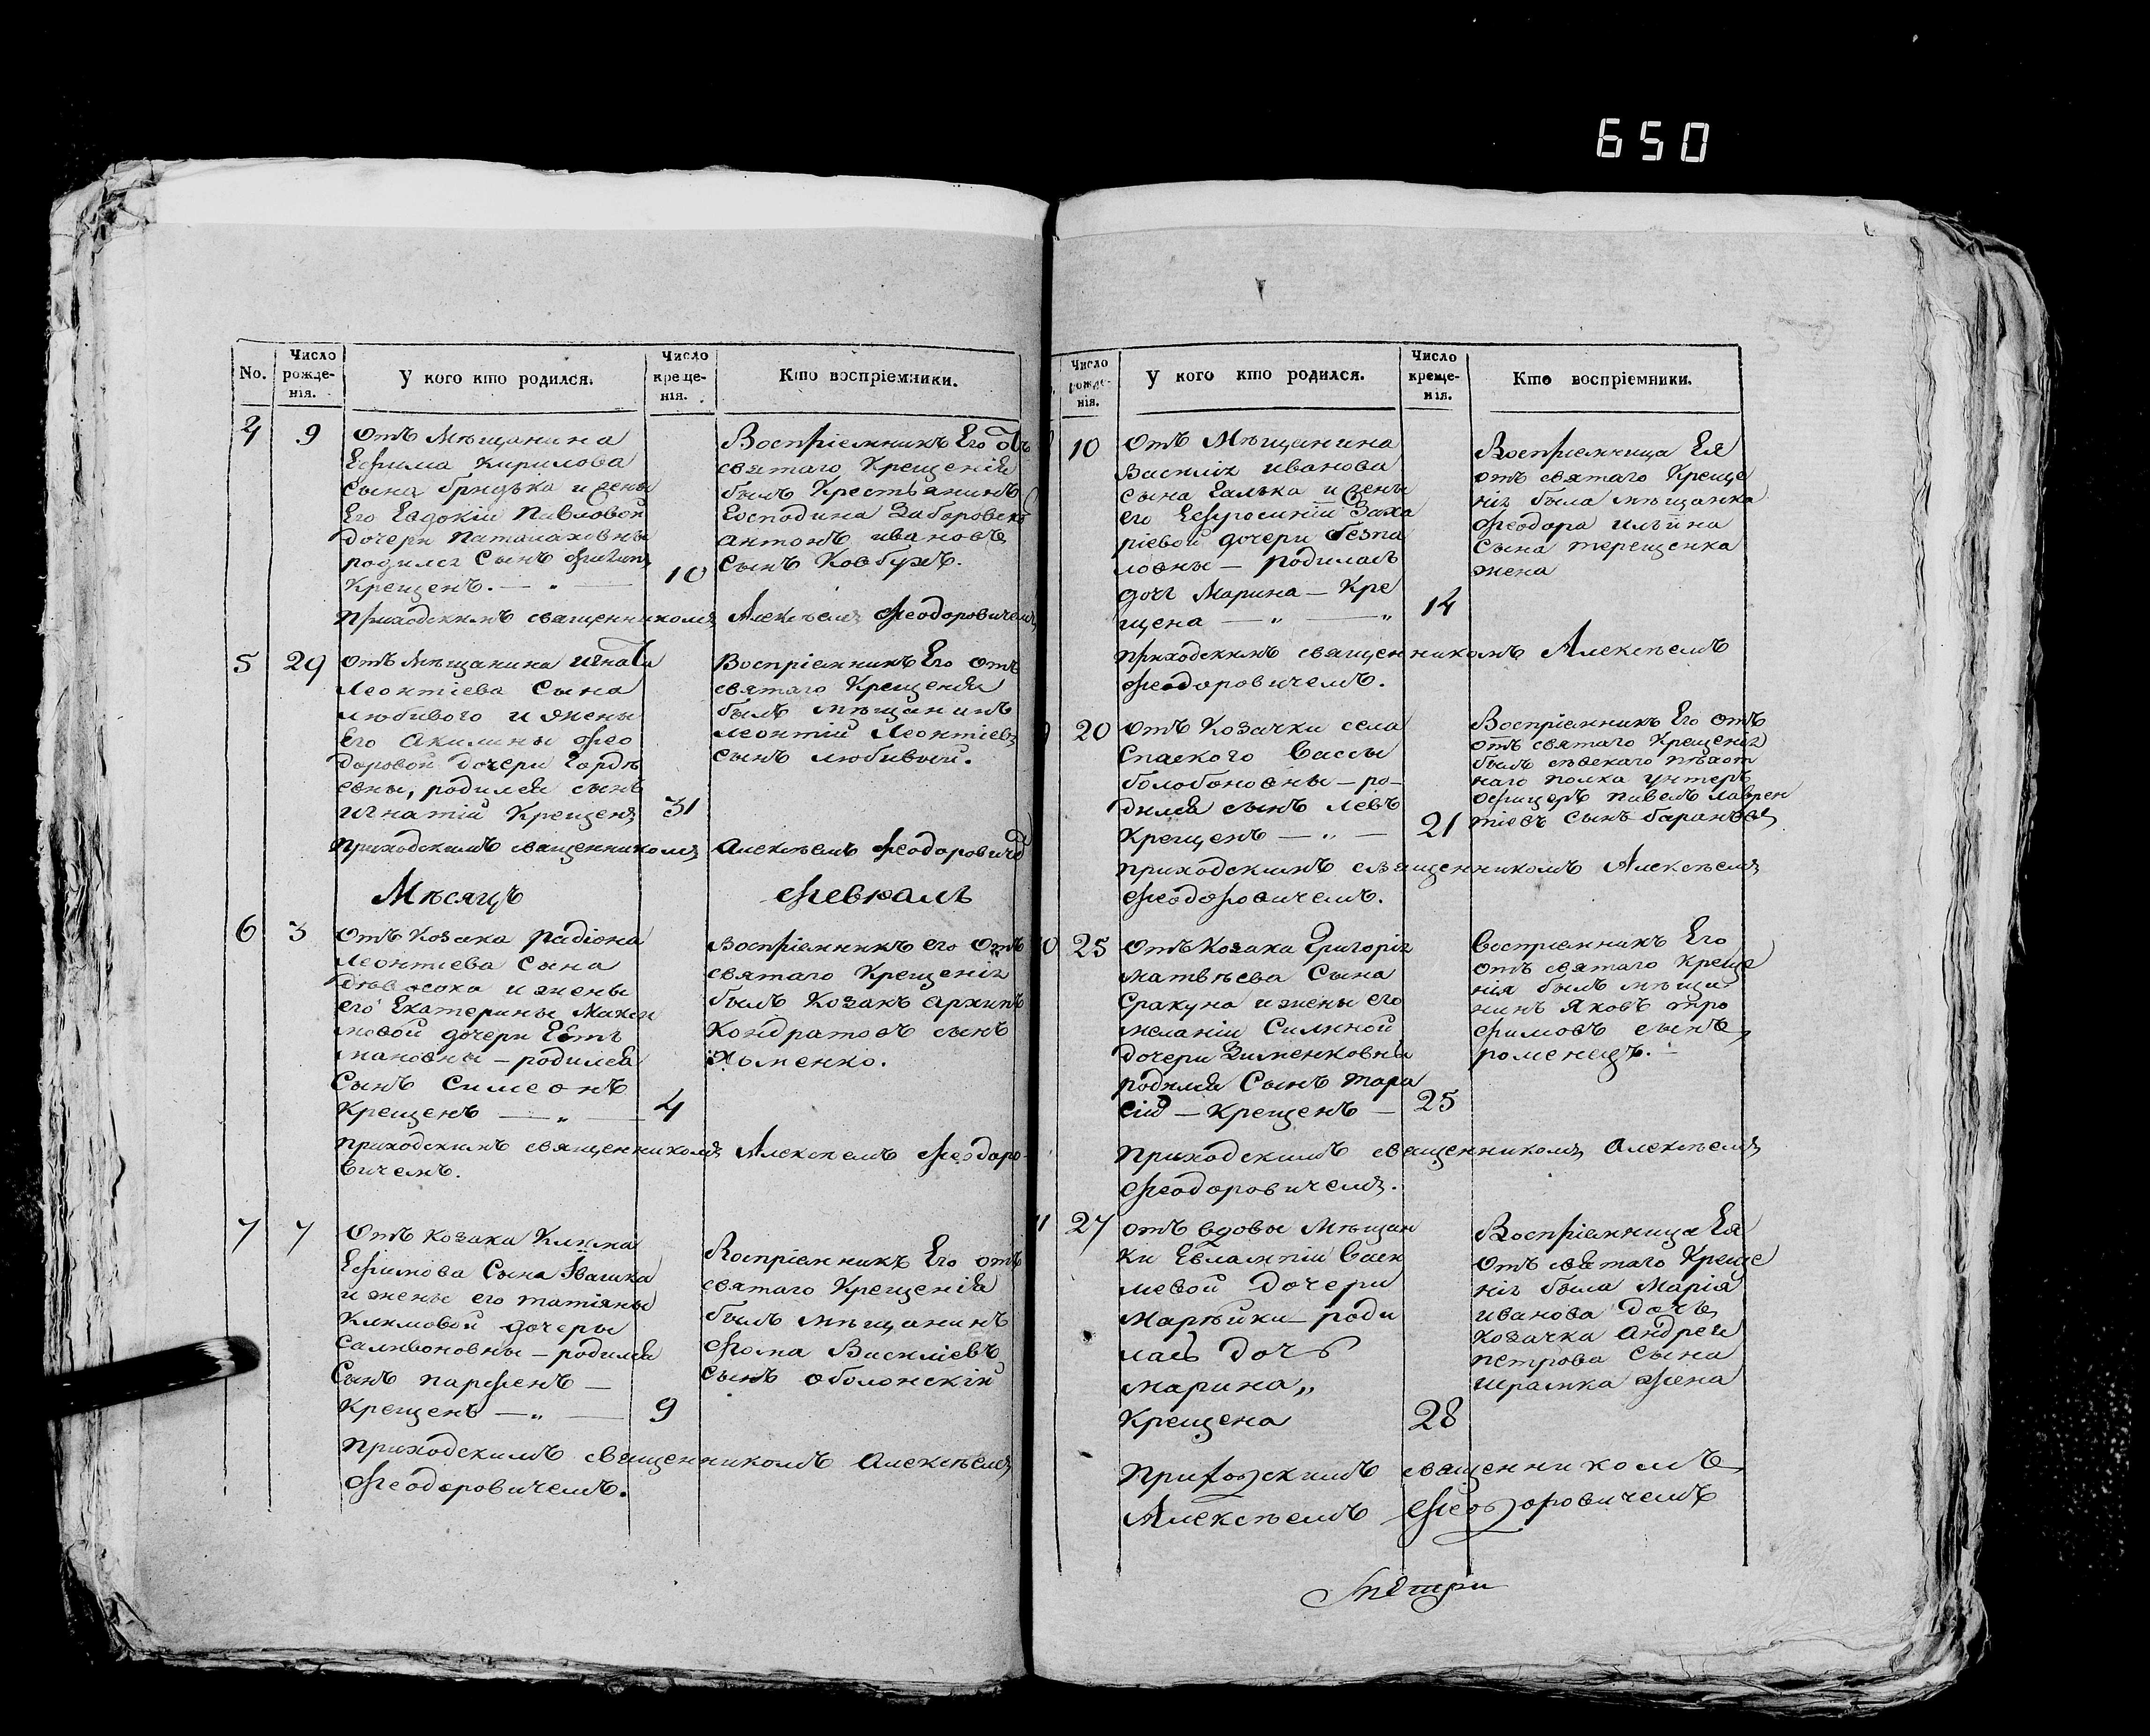 650
No.
Число рожде-нія.
У кого кто родился.
Число креще-нія.
Кто воспріемники.
4 9
отъ Мѣщанина
Ефима Кирилова
сына бридька и жены
Его Евдокіи Павловой
дочери
родился Сынъ
Крещенъ. — „ — 10
Воспріемникъ Его отъ
святаго Крещенія
былъ Крестьянинъ
Господина Заборовско
Антонъ ивановъ
Сынъ Ковбужъ.
приходскимъ священникомъ Алексѣемъ Феодоровичемъ
5 29
отъ Мѣщанина игната
Леонтіева Сына
любивого и жены
Его Акилины Фео
доровой дочери Гордѣ
евны, родился сынъ
игнатій Крещенъ 31
Воспріемникъ Его отъ
святаго Крещенія
былъ мѣщанинъ
Леонтій Леонтіевъ
сынъ любивый.
приходскимъ священникомъ Алексѣемъ Феодорович
Мѣсяцъ Февраль
6 3
отъ Козака Радіона
Леонтіева Сына
и жены
его Екатерины Макси
мовой дочери
мановны — родился
Сынъ Симеонъ
Крещенъ — „ — 4
воспріемникъ его отъ
святаго Крещенія
былъ Козакъ Архипъ
Кондратовъ сынъ
Хоменко.
приходскимъ священникомъ Алексѣемъ Феодоро
вичемъ.
7 7
отъ Козака Клима
Ефимова Сына Ивашка
и жены его татіяны
Климовой дочеры
Саливоновны — родился
Сынъ парфенъ —
Крещенъ — „ — 9
Воспріемникъ Его отъ
святаго Крещенія
былъ мѣщанинъ
Фома Василіевъ
сынъ оболонскій
приходскимъ священникомъ Алексѣемъ
Феодоровичемъ.
Число рожде-нія.
У кого кто родился.
Число креще-нія.
Кто воспріемники.
10
отъ Мѣщанина
Василія иванова
сына Галька и жены
его Ефросиніи Заха
ріевой дочери безпа
ловны — родилась
дочь Марина — Кре
щена — „ — „ 14
Воспріемница Ея
отъ святаго Креще
нія была мѣщанка
Феодора ильина
Сына терещенка
жена
приходскимъ священникомъ Алексѣемъ
Феодоровичемъ.
20
отъ Козачки села
Спаского Вассы
болобоновны — ро-
дился сынъ Левъ
Крещенъ — „ — 21
Воспріемникъ Его отъ
отъ святаго Крещенія
былъ сѣвскаго пѣхот
наго полка унтеръ
офицеръ павелъ лаврен
тіевъ сынъ барановъ
приходскимъ священникомъ Алексѣемъ
Феодоровичемъ.
0 25
отъ Козака Григорія
матвѣева Сына
Сракуна и жены его
меланіи Силиной
дочери Зименковны
родился Сынъ тара
сій — Крещенъ — 25
Воспріемникъ Его
отъ святаго Креще
нія былъ мѣща
нинъ Яковъ тро
фимовъ сынъ
роменецъ. —
приходскимъ священникомъ Алексѣемъ
Феодоровичемъ.
11 27
отъ вдовы мѣщан
ки Евлампіи Васи
левой дочери
роди
лась дочь
марина„
Крещена 28
Воспріемница Ея
отъ святаго Креще
нія была Марія
иванова дочь
козачка Андрея
петрова сына
шрамка жена
приходскимъ священникомъ
Алексѣемъ Феодоровичемъ